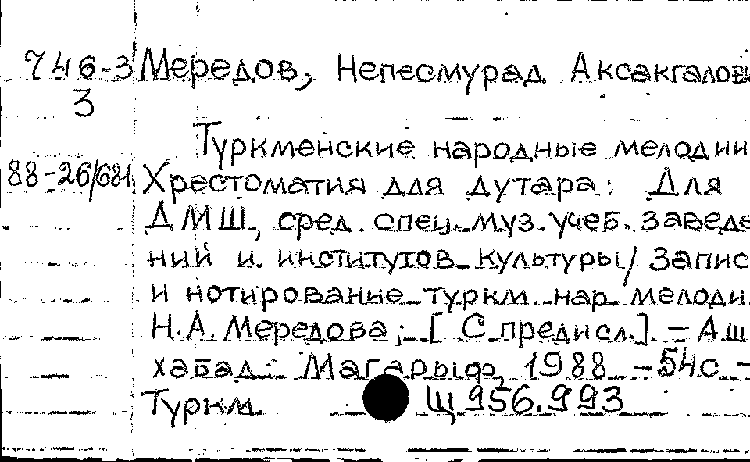 746-3 Мередов, Непесмурад Аксакгалови
3
Туркменские народные мелодии
88-26/681 Хрестоматия для дутара: Для
ДМШ, сред. спец. муз. учеб. заведе
ний и институтов культуры/ Запис
и нотирование туркм. нар. мелоди
Н.А. Мередова; [С предисл.]. - Аш
хабад: Магарыф, 1988 - 54с -
Туркм. Щ 956.993